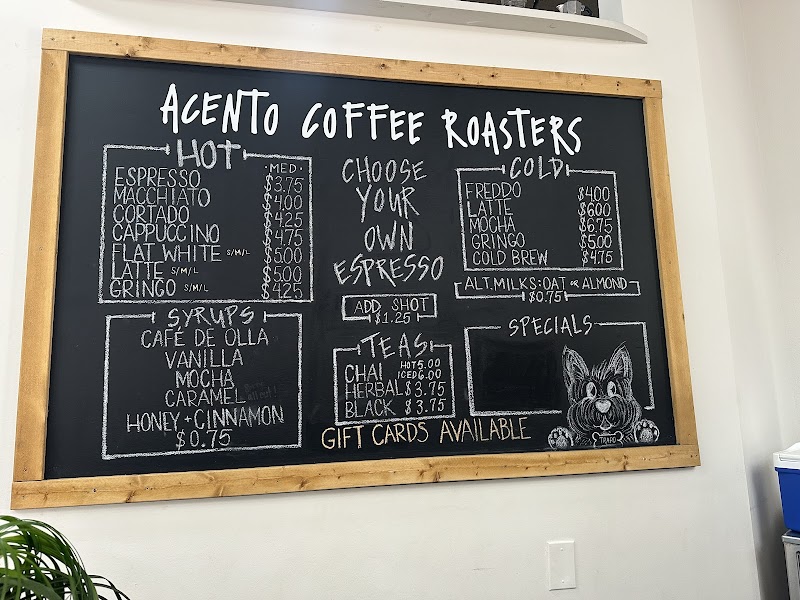 ACENTO COFFEE ROASTERS
HOT
MED.
ESPRESSO $3.75
MACCHIATO $4.00
CORTADO $4.25
CAPPUCCINO $4.75
FLAT WHITE S/M/L $5.00
LATTE S/M/L $5.00
GRINGO S/M/L $4.25
SYRUPS
CAFÉ DE OLLA
VANILLA
MOCHA
CARAMEL
HONEY + CINNAMON
$0.75
CHOOSE
YOUR
OWN
ESPRESSO
ADD SHOT
$1.25
TEAS
CHAI HOT 5.00
ICED 6.00
HERBAL $3.75
BLACK $3.75
GIFT CARDS AVAILABLE
COLD
FREDDO $4.00
LATTE $6.00
MOCHA $6.75
GRINGO $5.00
COLD BREW $4.75
ALT. MILKS: OAT OR ALMOND
$0.75
SPECIALS
TRAPO